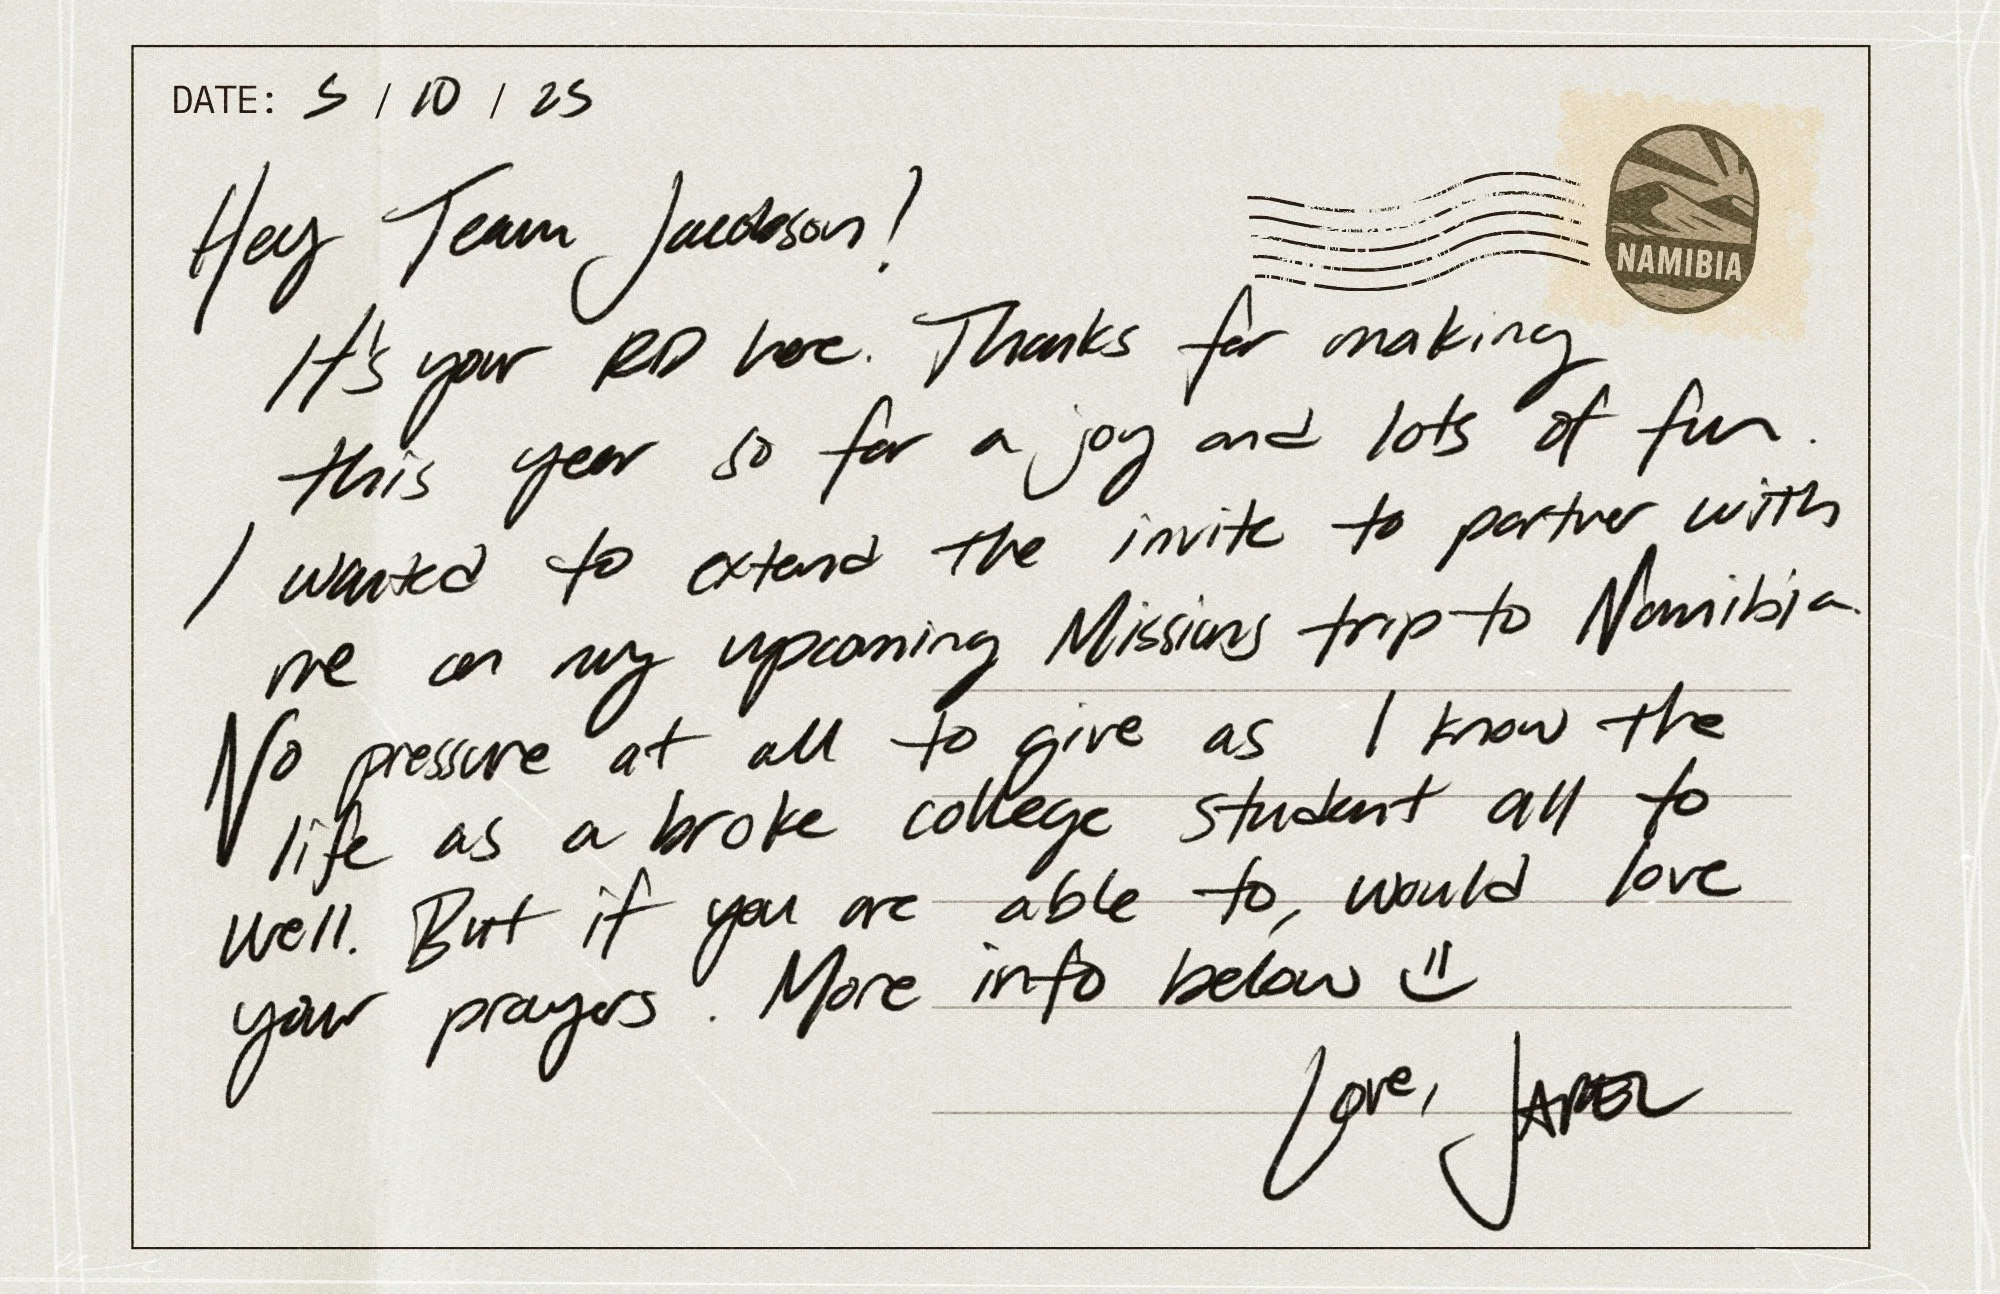 DATE: 5 / 10 / 25
Hey Team Jacobson!
NAMIBIA
It's your RD here. Thanks for making
this year so far a joy and lots of fun.
I wanted to extend the invite to partner with
me on my upcoming Missions trip to Namibia.
No pressure at all to give as I know the
life as a broke college student all to
well. But if you are able to, would love
your prayers. More info below
Love,